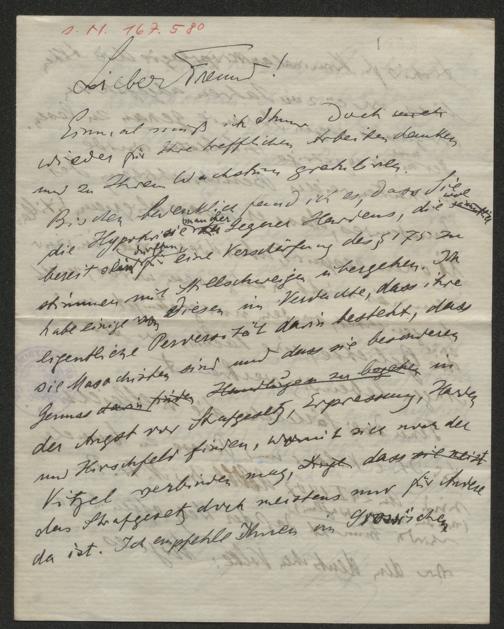 I.N. 167.580
Lieber Freund!
Einmal muß ich Ihnen doch auch
wieder für Ihre trefflichen Arbeiten danken
und zu Ihrem Wachstum gratulieren.
Bischen bedenklich fand ich es, dass Sie
die Hypokrisie mancher Gegner Hardens, die
bereit sind für eine Verschärfung des § 175 zu
stimmen mit Stillschweigen übergehen. Ich
habe einige von diesen im Verdachte, dass ihre
eigentliche Perversität darin besteht, dass
sie Masochisten sind und dass sie besonderen
Genuss darin finden Handlungen zu begehen in
der Angst vor Strafgesetz, Erpressung, Harden
und Hirschfeld finden, womit sich noch der
Kitzel verbinden mag, dass sie meist
das Strafgesetz doch meistens nur für Andere
da ist. Ich empfehle Ihnen im